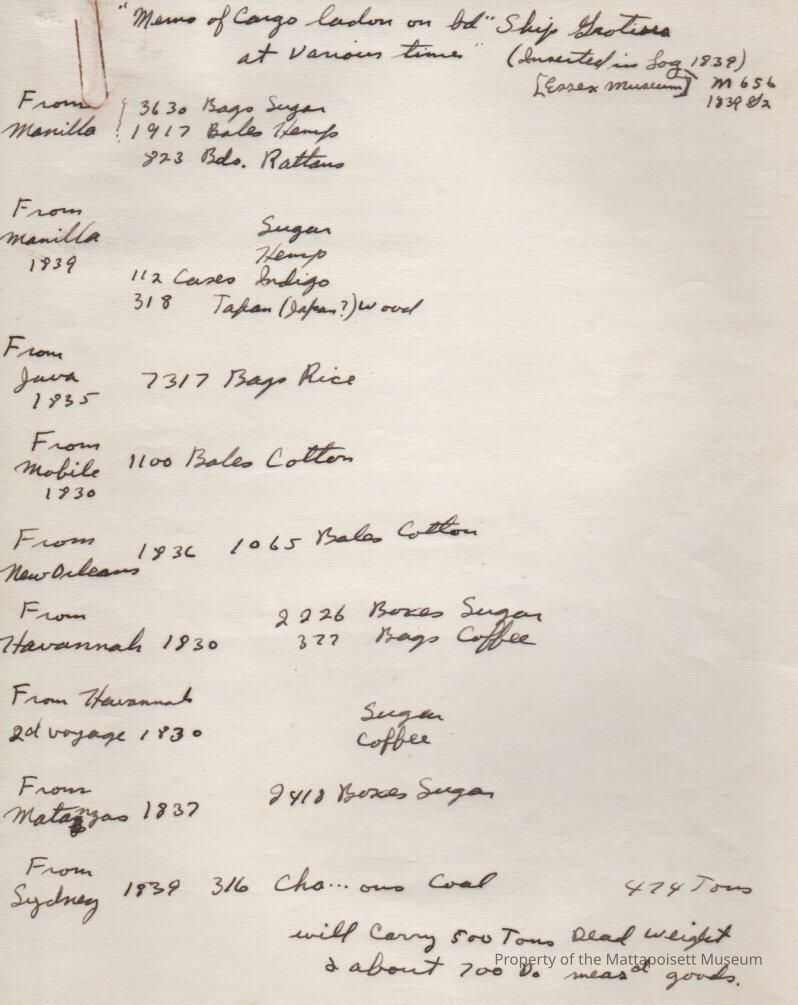 "Memo of Cargo laden on bd" Ship Grotius
at various times" (Inserted in Log 1839)
[Essex Museum] M 656
1839 G2
From
Manilla
3630 Bags Sugar
1917 Bales Hemp
823 Bdo. Rattans
From
Manilla
1839
Sugar
Hemp
112 Cases Indigo
318 Tapan (Japan?) wood
From
Java
1835
7317 Bags Rice
From
Mobile
1830
1100 Bales Cotton
From
New Orleans
1836 1065 Bales Cotton
From
Havannah 1830
2226 Boxes Sugar
377 Bags Coffee
From Havannah
2d voyage 1830
Sugar
Coffee
From
Matanzas 1837
2418 Boxes Sugar
From
Sydney
1839 316 Cha...ons Coal 474 Tons
will Carry 500 Tons Dead Weight
& about 700 Do measd goods.
Property of the Mattapoisett Museum